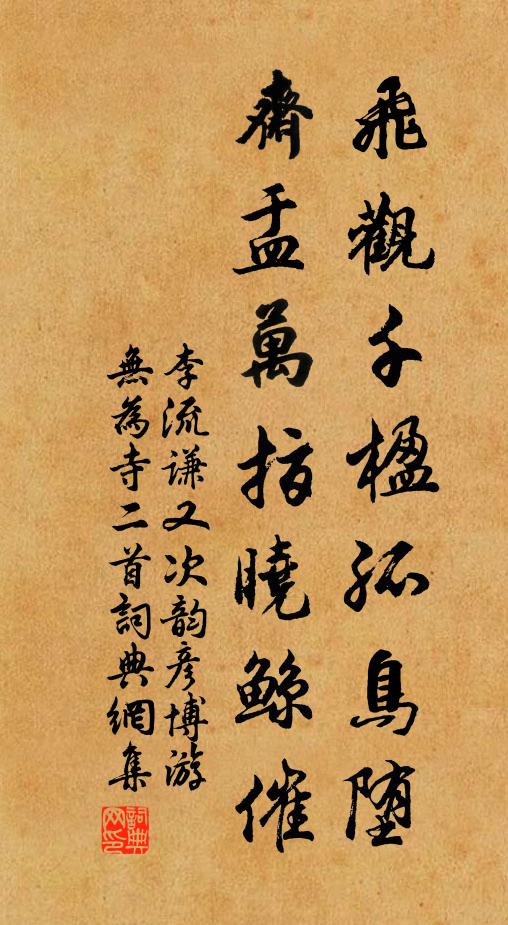 飛觀千楹孤鳥堕
齋盂萬指曉鯨催
李流謙又次韵彦博游
無為寺二首詞典網集
詞典网印